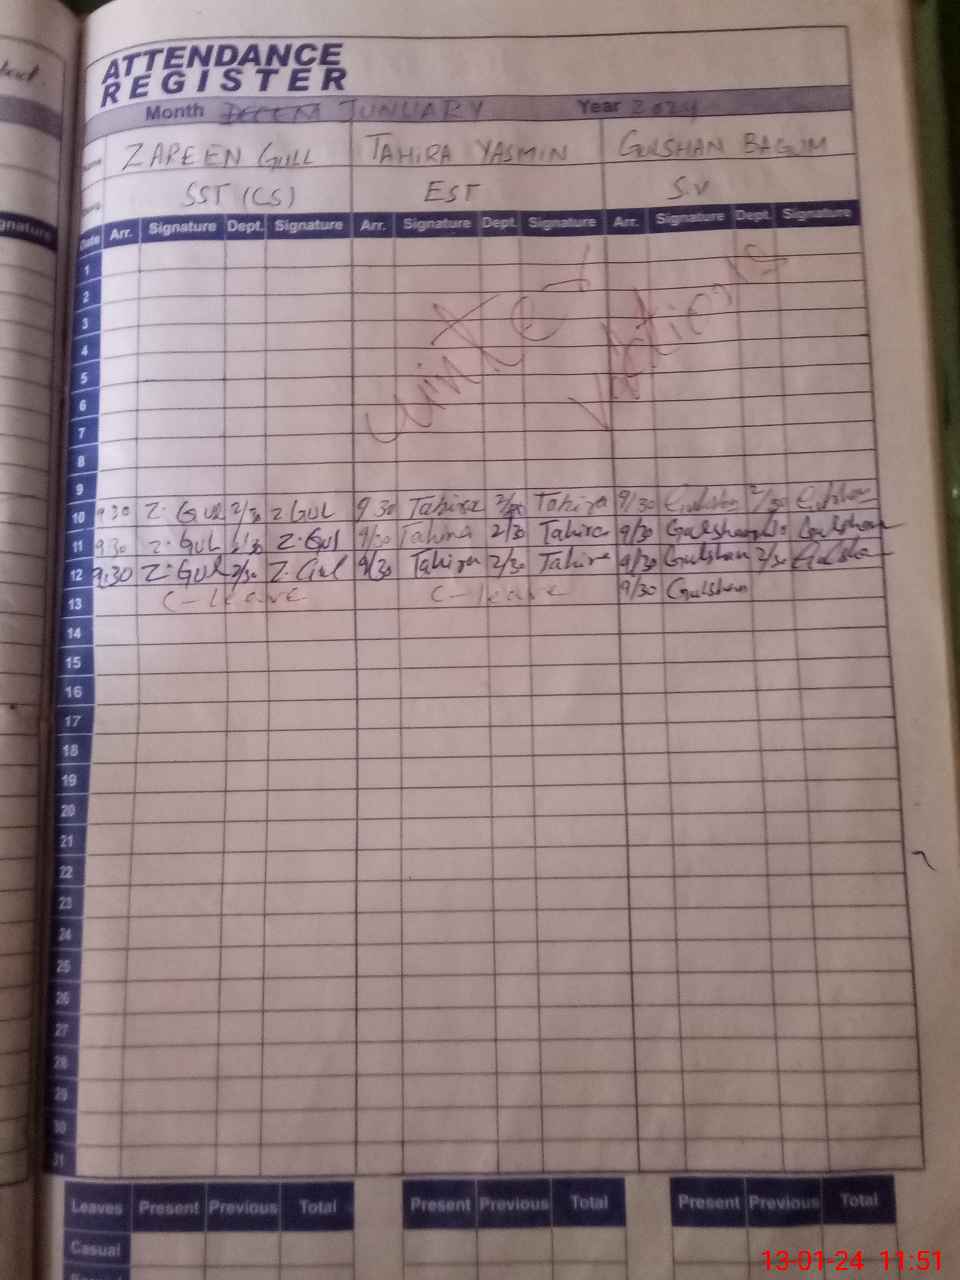 ATTENDANCE
REGISTER
Month DECEM JUNUARY Year 2024
Name ZAREEN GULL TAHIRA YASMIN GULSHAN BAGUM
SST (CS) EST S.V
Date Arr. Signature Dept. Signature Arr. Signature Dept. Signature Arr. Signature Dept. Signature
1
2
3
4
5
6
7
8
9
winter vacations
10 9 30 Z. GUL 2/30 Z GUL 9 30 Tahira Tahira 9/30 Gulshan 2/30 Gulshan
11 930 Z. GUL 2/30 Z. Gul 9/30 Tahira 2/30 Tahira 9/30 Gulshan Gulshan
12 9:30 Z. GUL 2/30 Z. Gul 9/30 Tahira 2/30 Tahira 9/30 Gulshan 2/30 Gulshan
13 C-leave C-leave 9/30 Gulshan
14
15
16
17
18
19
20
21
22
23
24
25
26
27
28
29
30
31
Leaves Present Previous Total Present Previous Total Present Previous Total
Casual
13-01-24 11:51